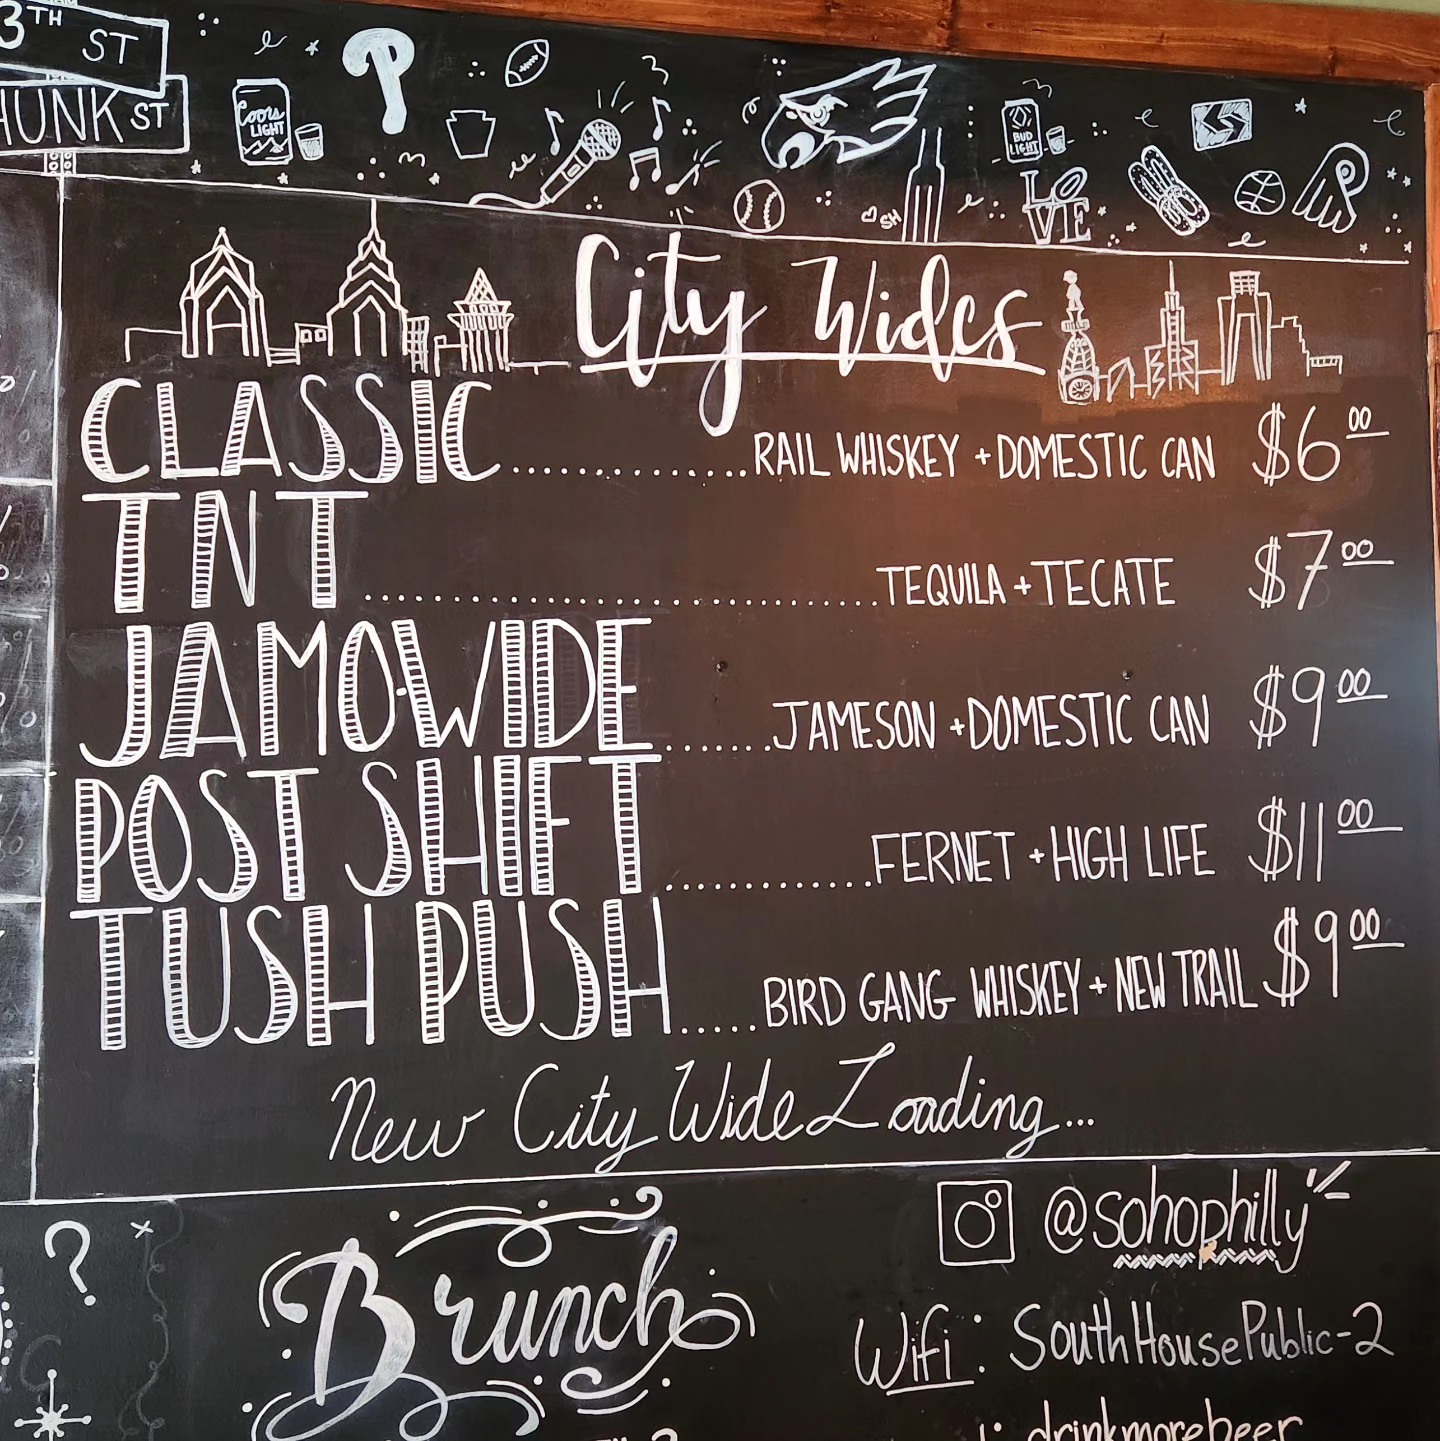 3TH ST
HUNK ST
Coors LIGHT
P
BUD LIGHT
LOVE
SH
City Wides
CLASSIC............RAIL WHISKEY + DOMESTIC CAN $6.00
TNT..............................TEQUILA + TECATE $7.00
JAMO-WIDE.......JAMESON + DOMESTIC CAN $9.00
POST SHIFT.............FERNET + HIGH LIFE $11.00
TUSH PUSH.....BIRD GANG WHISKEY + NEW TRAIL $9.00
New City Wide Loading...
?
Brunch
@sohophilly
Wifi: SouthHousePublic-2
drinkmorebeer